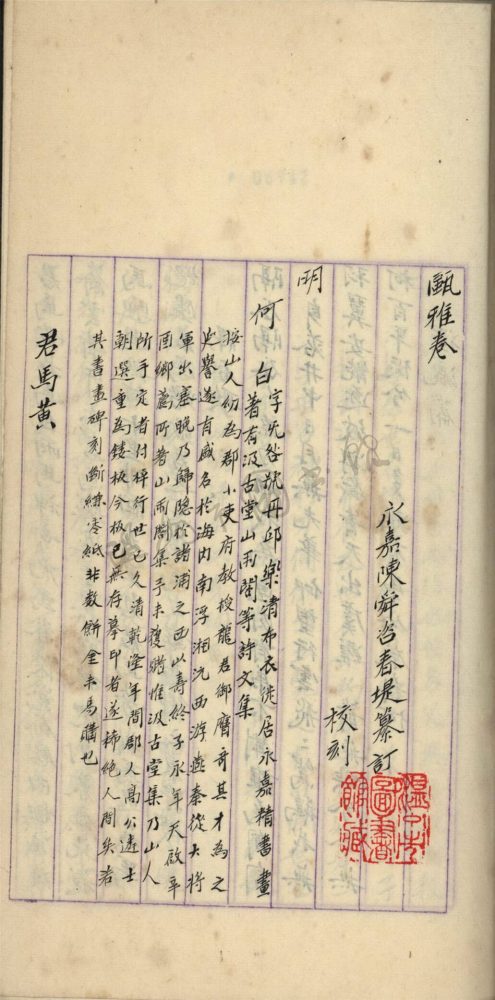 甌雅卷
永嘉陳舜咨春堤纂訂
校刻
明
何白字无咎號丹邱樂清布衣徙居永嘉精書畫
著有汲古堂山雨閣等詩文集
按山人幼為郡小吏府教授龍君御賡奇其才為之
延譽遂有盛名於海內南浮湘沅西游燕秦從大將
軍出塞晚乃歸隱於諸浦之西以壽終子永年天啟
画鄉薦所著山雨閣集予未獲覩惟汲古堂集乃山人
所手定者付梓行世已久清乾隆年間郡人高公遠士
朝選重為鏤板今板已無存摹印者遂稀絕人間矣若
其書畫碑刻斷縑零紙非數餅金未易購也
君馬黃
溫州市圖書館藏